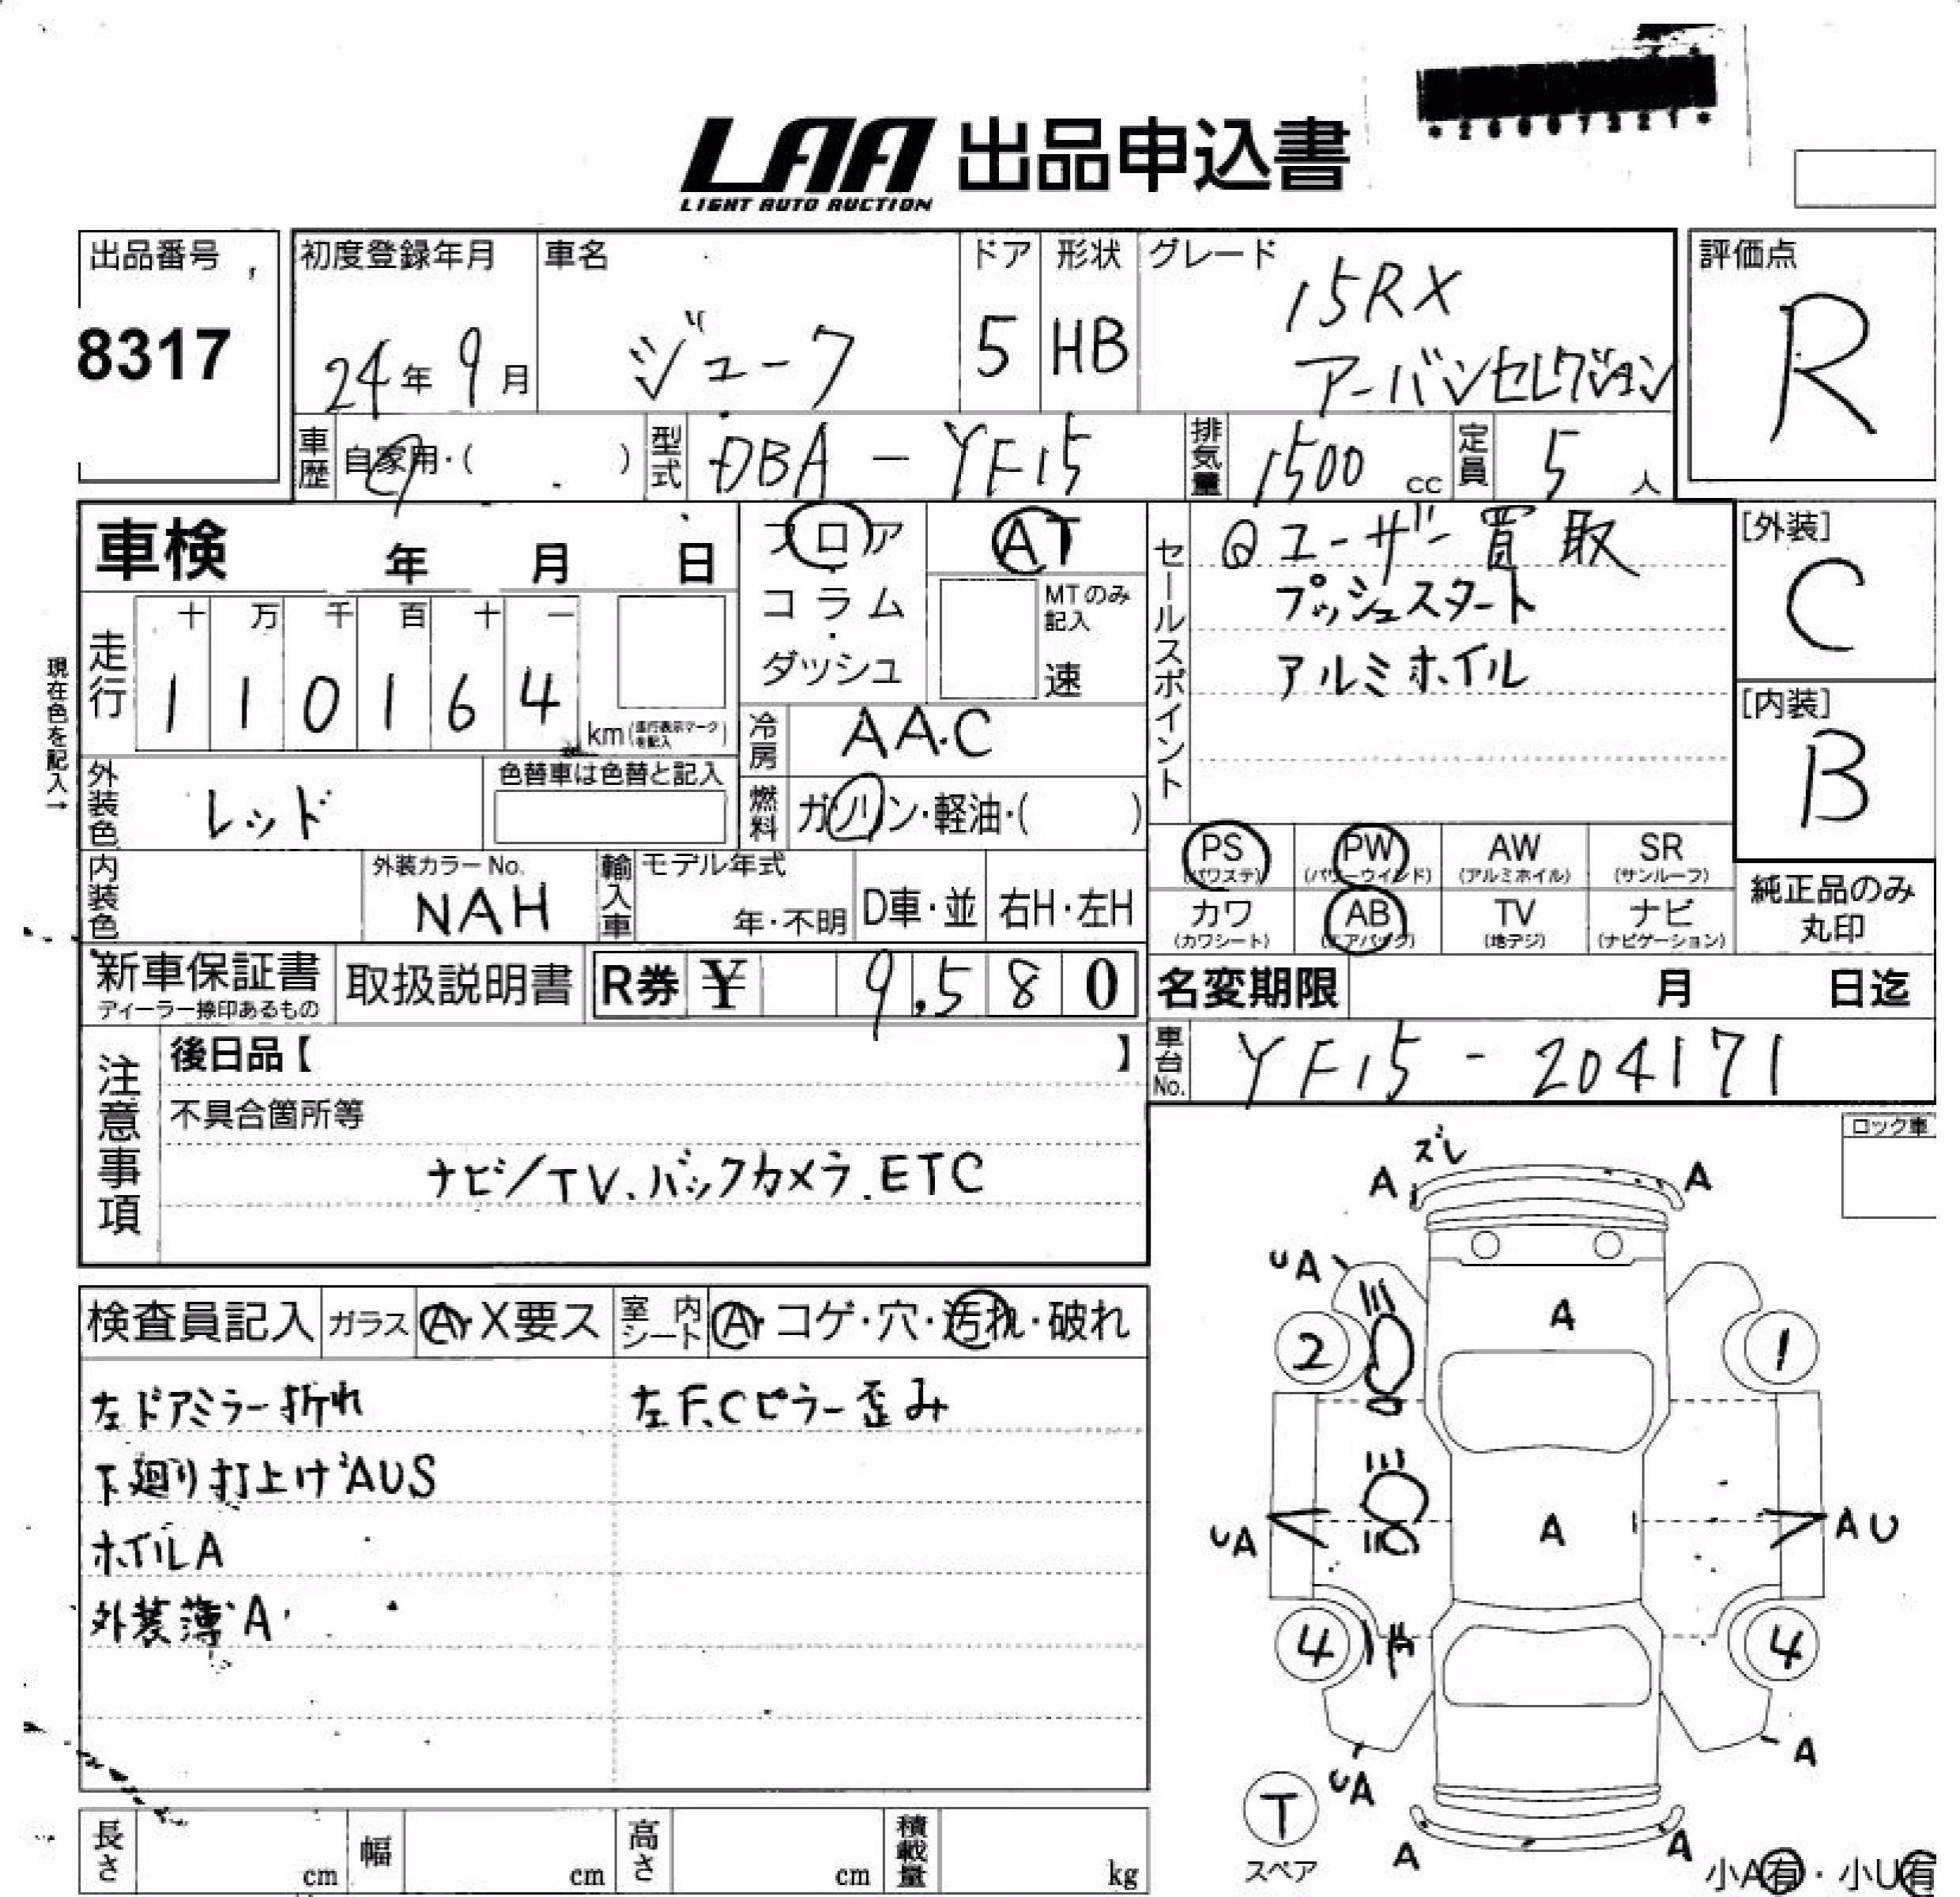 LAA 出品申込書
LIGHT AUTO AUCTION
出品番号
8317
初度登録年月
24年 9月
車名
ジューク
ドア
5
形状
HB
グレード
15RX
アーバンセレクション
評価点
R
車歴
自家用・( )
型式
DBA - YF15
排気量
1500 cc
定員
5 人
車検 年 月 日
フロア
・
コラム
・
ダッシュ
AT
MTのみ
記入
速
セールスポイント
Qユーザー買取
プッシュスタート
アルミホイル
[外装]
C
[内装]
B
現在色を記入→
走行
十 万 千 百 十 一
1 1 0 1 6 4
km(走行表示マークを記入)
冷房
AA.C
外装色
レッド
色替車は色替と記入
燃料
ガソリン・軽油・( )
PS
(パワステ)
PW
(パワーウインド)
AW
(アルミホイル)
SR
(サンルーフ)
カワ
(カワシート)
AB
(エアバック)
TV
(地デジ)
ナビ
(ナビゲーション)
純正品のみ
丸印
内装色
外装カラーNo.
NAH
輸入車
モデル年式
年・不明
D車・並
右H・左H
新車保証書
ディーラー捺印あるもの
取扱説明書
R券 ¥ 9,580
名変期限 月 日迄
車台No.
YF15 - 204171
注意事項
後日品【 】
不具合箇所等
ナビ/TV、バックカメラ.ETC
ロック車
検査員記入
ガラス
A・X要ス
室内シート
A・コゲ・穴・汚れ・破れ
左ドアミラー折れ
左F、Cピラー歪み
下廻り打上げAUS
ホイルA
外装薄A
ズレ
A
A
UA
A
2
1
UA
A
AU
4
4
UA
A
T
スペア
A
A
小A有・小U有
長さ cm
幅 cm
高さ cm
積載量 kg